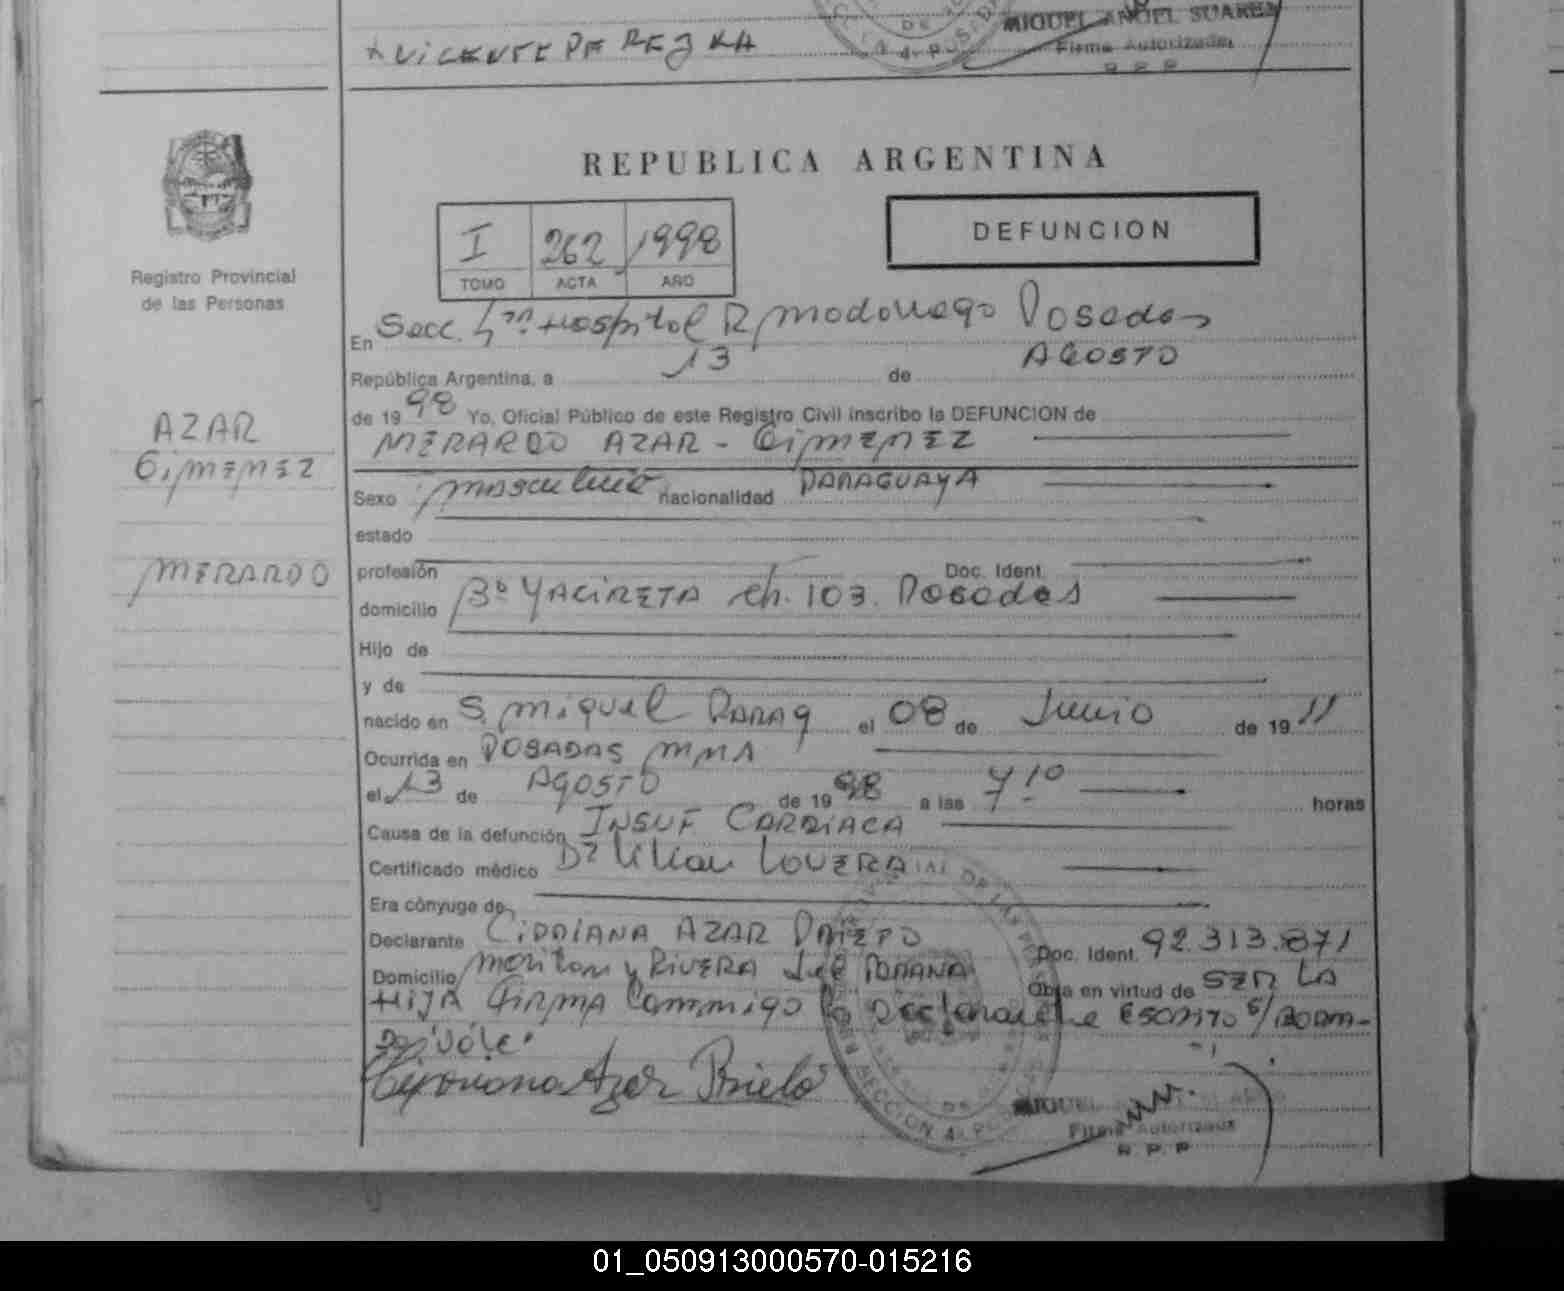 VICENTE PEREZ
MIGUEL ANGEL SUAREZ
Firma Autorizada
R. P. P.
Registro Provincial
de las Personas
REPUBLICA ARGENTINA
I 262 1998
TOMO ACTA AÑO
DEFUNCION
En Secc. 4ta Hospital R, madariaga Posadas
República Argentina, a 13 de AGOSTO
de 19 98 Yo, Oficial Público de este Registro Civil inscribo la DEFUNCION de
MERARDO AZAR - GiMENEZ
AZAR
GiMENEZ
MERARDO
Sexo masculino nacionalidad PARAGUAYA
estado
profesión Doc. Ident.
domicilio Bº YACIRETA ch. 103. Posadas
Hijo de
y de
nacido en S. Miguel PARAG el 08 de Junio de 19 11
Ocurrida en POSADAS MNA
el 13 de AGOSTO de 19 98 a las 7 10 horas
Causa de la defunción INSUF CARDIACA
Certificado médico Dra Lilian LOVERA
Era cónyuge de
Declarante CiPRIANA AZAR PRIETO Doc. Ident. 92.313.871
Domicilio y RIVERA PARANA Obra en virtud de SER LA
HIJA FIRMA Conmigo la Declarante ESCRITO S/BORRA-
Do: vále.
Cipriana Azar Prieto
MIGUEL
Firma Autorizada
R. P. P.
01_050913000570-015216